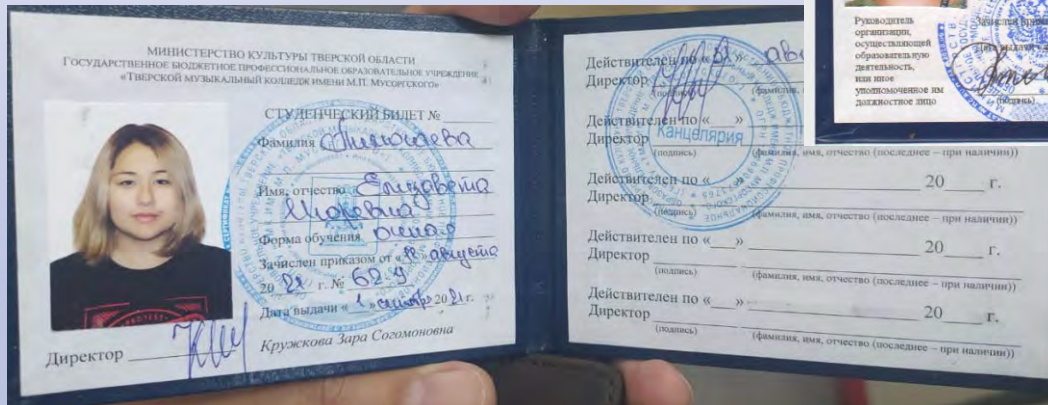 МИНИСТЕРСТВО КУЛЬТУРЫ ТВЕРСКОЙ ОБЛАСТИ
ГОСУДАРСТВЕННОЕ БЮДЖЕТНОЕ ПРОФЕССИОНАЛЬНОЕ ОБРАЗОВАТЕЛЬНОЕ УЧРЕЖДЕНИЕ
«ТВЕРСКОЙ МУЗЫКАЛЬНЫЙ КОЛЛЕДЖ ИМЕНИ М.П. МУСОРГСКОГО»
СТУДЕНЧЕСКИЙ БИЛЕТ №
Фамилия
Имя, отчество Елизавета
Игоревна
Форма обучения очная
Зачислен приказом от « » августа
20 21 г. №
Дата выдачи « 1 » 2021 г.
Директор Кружкова Зара Согомоновна
Действителен по «31» авг
Директор
(подпись) (фамилия,
Действителен по « »
Директор
Канцелярия
(подпись) (фамилия, имя, отчество (последнее – при наличии))
Действителен по « » 20 г.
Директор
(подпись) (фамилия, имя, отчество (последнее – при наличии))
Действителен по « » 20 г.
Директор
(подпись) (фамилия, имя, отчество (последнее – при наличии))
Действителен по « » 20 г.
Директор
(подпись) (фамилия, имя, отчество (последнее – при наличии))
Руководитель
организации,
осуществляющей
образовательную
деятельность,
или иное
уполномоченное им
должностное лицо
Зачислен
Дата выдачи
(подпись)